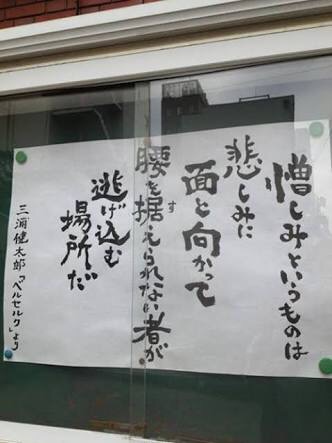 憎しみというものは
悲しみに
面と向かって
腰を据えられない者が
す
逃げ込む
場所だ
三浦健太郎「ベルセルク」より